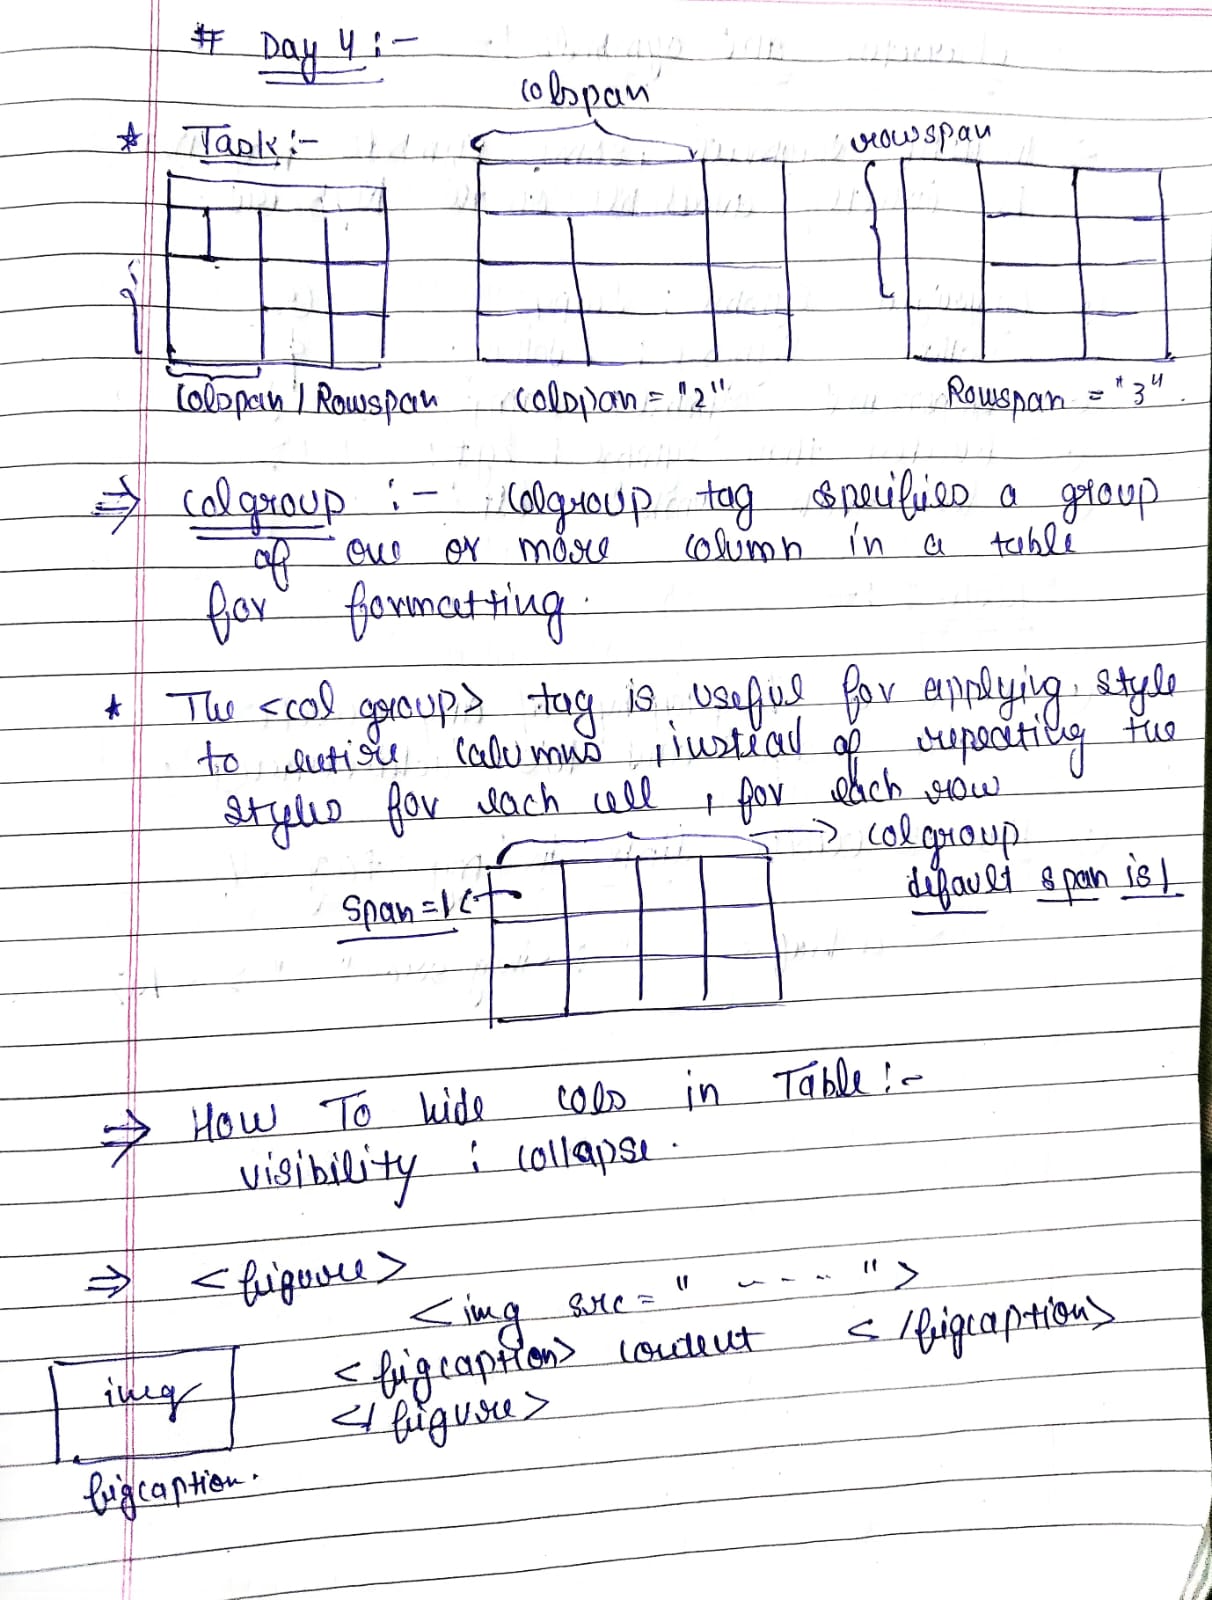 # Day 4 :-
colspan
* Task :-
rowspan
Colspan / Rowspan
colspan = "2"
Rowspan = "3".
⇒ colgroup :- colgroup tag specifies a group
of one or more column in a table
for formatting.
* The <col group> tag is useful for applying style
to entire columns, instead of repeating the
styles for each cell, for each row
→ colgroup
default span is 1
Span = 1 ←
⇒ How To hide cols in Table :-
visibility : collapse.
⇒ <figure>
<img src = " - - - - ">
<figcaption> content </figcaption>
</figure>
img
figcaption.